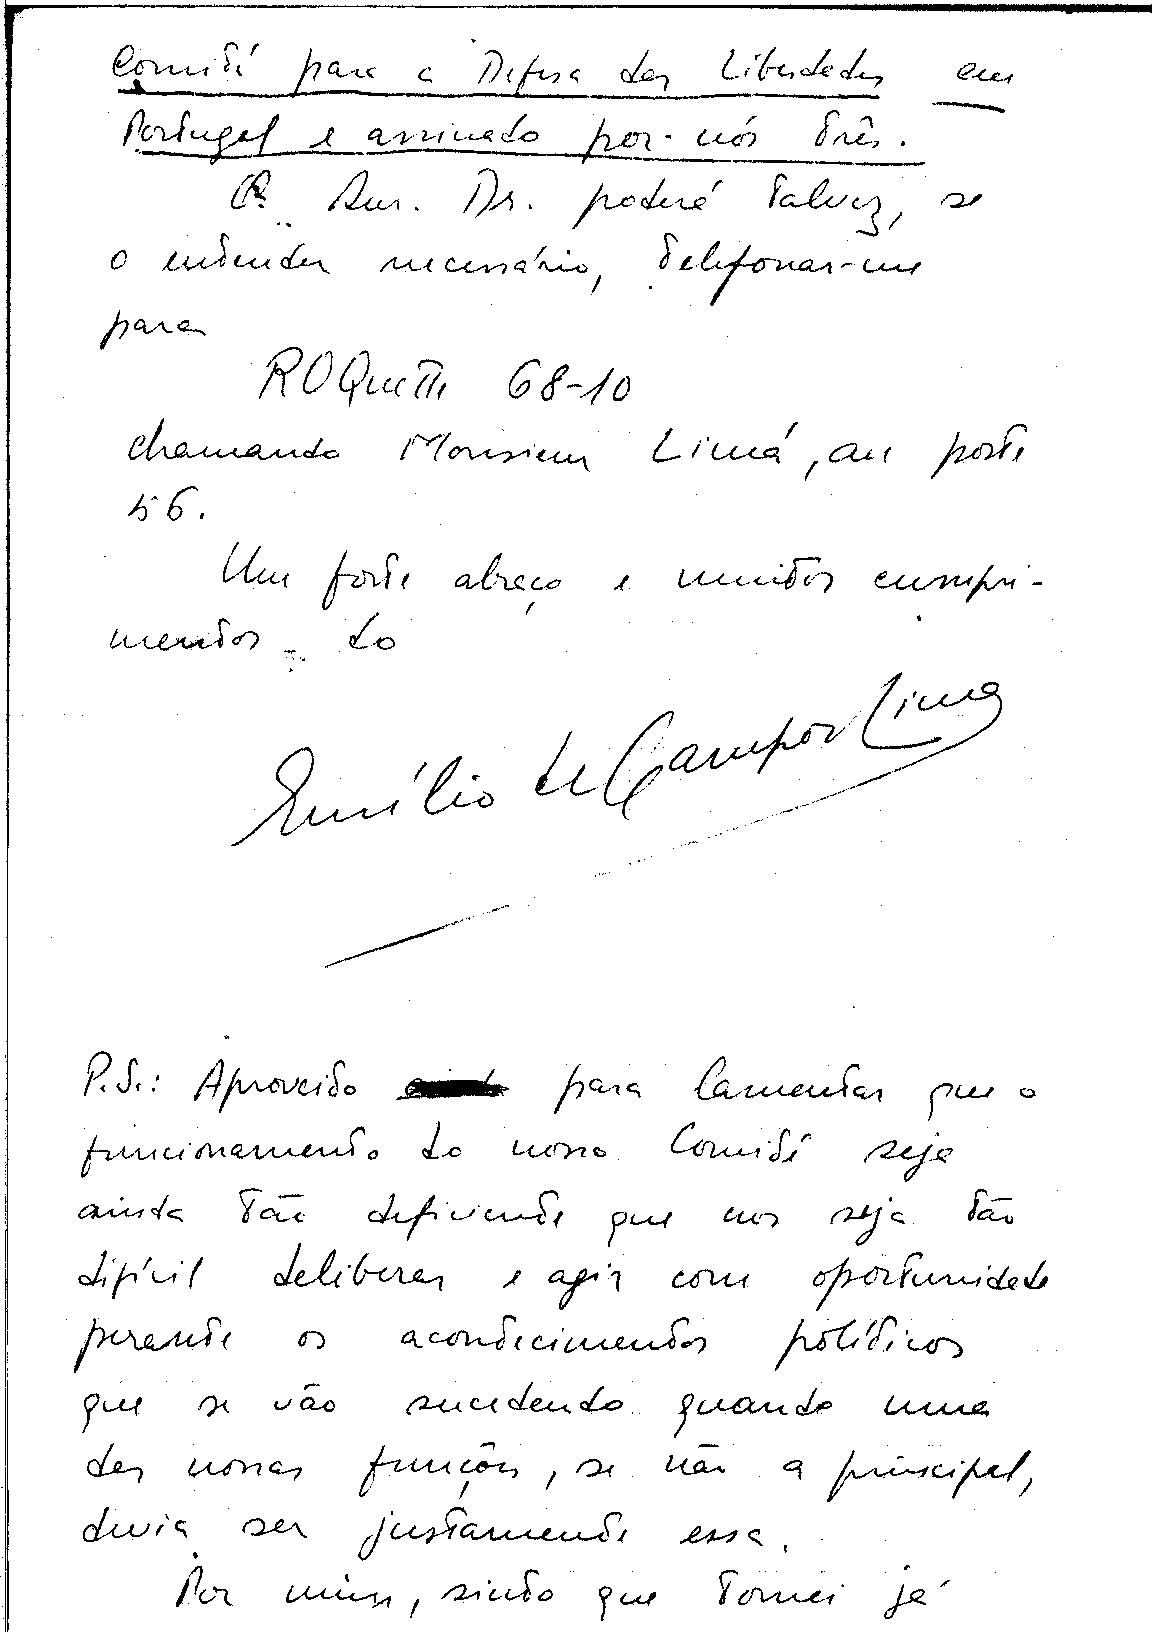 Comité para a Defesa das Liberdades em
Portugal e assinado por nós três.
O Sur. Dr. poderá talvez, se
o entender necessário, telefonar-me
para
ROQuette 68-10
chamando Monsieur Limá, au poste
56.
Um forte abraço e muitos cumpri-
mentos do
Emílio de Campos Lima
P.S.: Aproveito para lamentar que o
funcionamento do nosso Comité seja
ainda tão deficiente que nos seja tão
difícil deliberar e agir com oportunidade
perante os acontecimentos políticos
que se vão sucedendo quando uma
das nossas funções, se não a principal,
devia ser justamente essa.
Por mim, sinto que tomei já